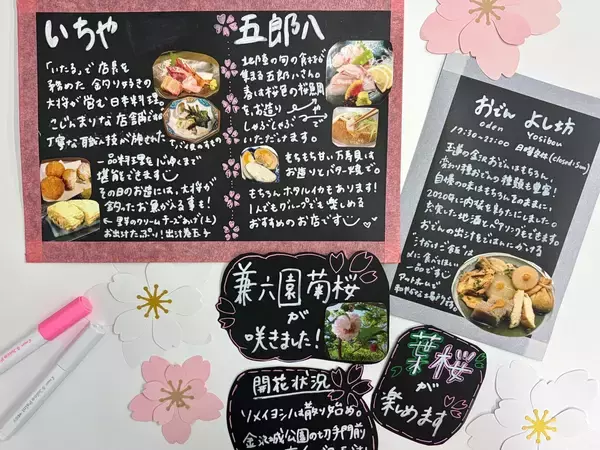 いちや
「いたる」で店長を
務めた釣り好きの
大将が営む日本料理。
こじんまりな店舗ですが
丁寧な職人技が施された
一品料理を心ゆくまで
堪能できます
その日のお造りには、大将が
釣ったお魚が入る事も!
お出汁たっぷり!出汁巻玉子
五郎八
北陸の旬の食材が
集まる五郎八さん。
春は桜色の桜鯛を
お造り
しゃぶしゃぶで
いただけます。
もちもち甘い万寿貝は
お造りとバター焼で。
もちろんホタルイカもあります!
1人でもグループでも楽しめる
おすすめのお店です
おでん よし坊
Oden Yosibou
17:30-23:00 日曜定休(closed:Sun)
王道の金沢おでんはもちろん
変わり種おでんの種類も豊富!
自慢の味はもちろんそのままに
2020年に内装を新たにしました。
充実した地酒とペアリングもできます。
おでんの出汁をごはんにかける
"汁かけご飯"は
〆に食べてほしい
一品です
アットホームで
兼六園菊桜
が
咲きました!
開花状況
ソメイヨシノは散り始め。
金沢城公園の切手門前
葉桜
が
楽しめます